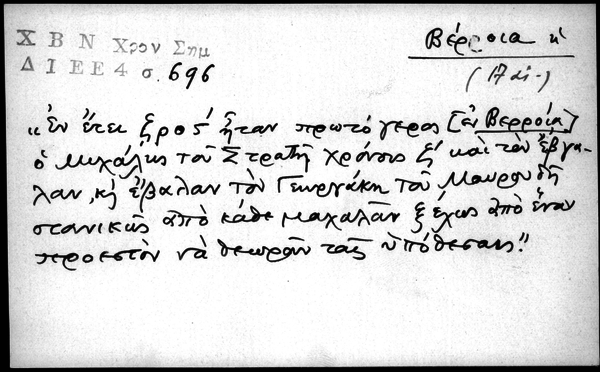 Χ Β Ν Χρον Σημ
Δ Ι Ε Ε 4 σ. 696
Βέρροια
«ἐν ἔτει ξροστʹ ἦταν πρωτόγερος [ἐν Βερροίᾳ]
ὁ Μιχάλης τοῦ Στρατῆ χρόνους ξʹ καὶ τὸν ἐβγα-
λαν, κὴ ἔβαλαν τὸν Γεωργάκη τοῦ Μαυρουδῆ
στανικῶς ἀπὸ κάθε μαχαλᾶν ξεχως ἀπὸ ἕναν
προεστὸν νὰ θεωροῦν ταῖς ὑπόθεσαις»